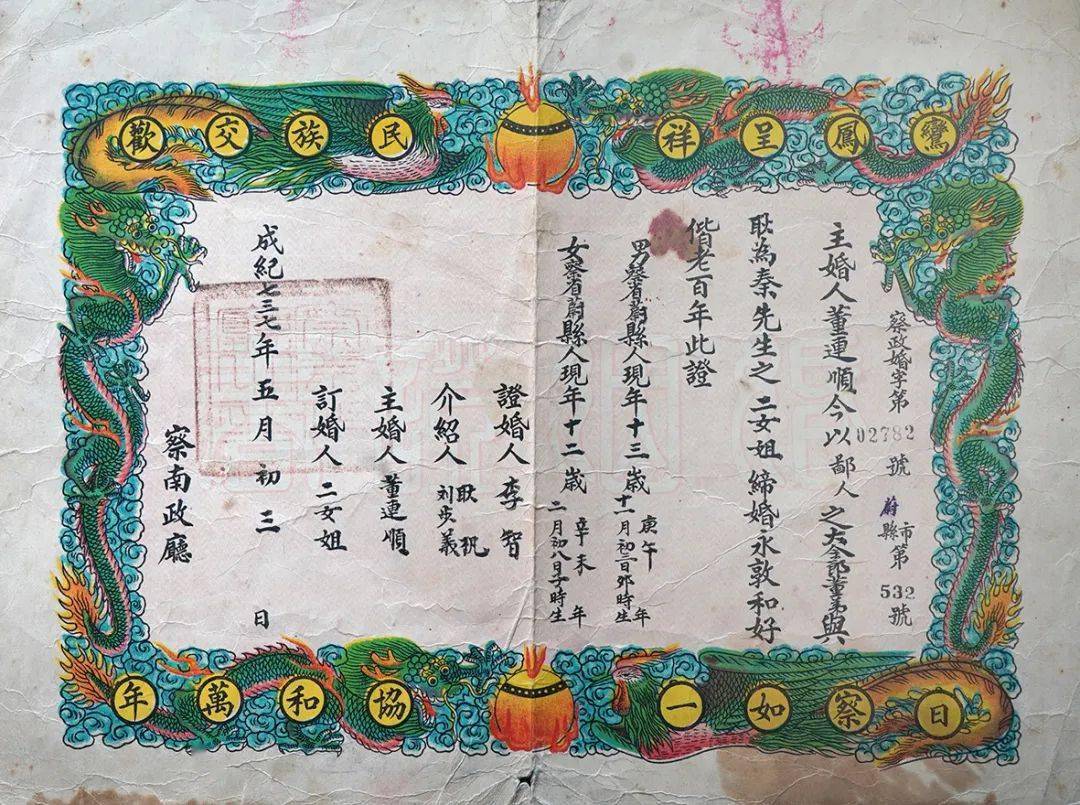 鸞鳳呈祥
民族交歡
察政婚字第02782號
蔚縣市第532號
主婚人董連順今以鄙人之大令郎董弟與
耿為秦先生之二女姐締婚永敦和好
偕老百年此證
男察省蔚縣人現年十三歲庚午年十一月初二日卯時生
女察省蔚縣人現年十二歲辛未年二月初八日子時生
證婚人李智
介紹人耿
劉步義
主婚人董連順
訂婚人二女姐
成紀七三七年五月初三日
察南政廳
日察如一
協和萬年